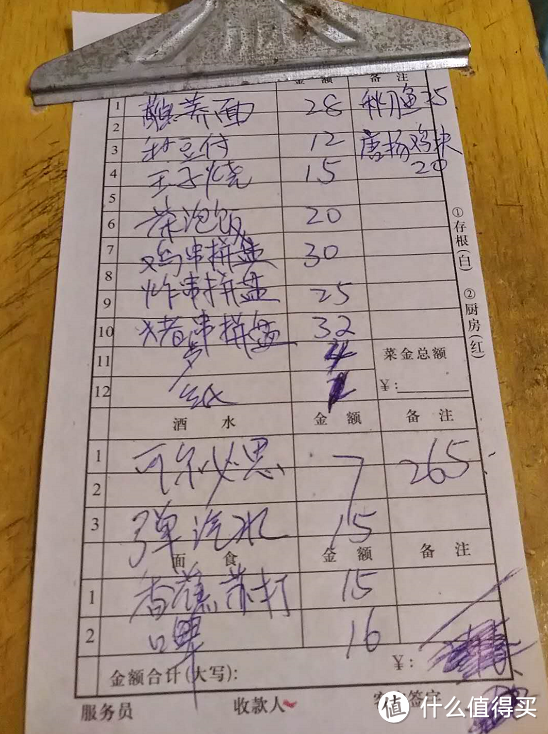 金 额 备 注
1 蘸荞面 28 秋刀鱼 25
2
3 杜豆付 12 唐扬鸡块 20
4 玉子烧 15
5
6 茶泡饭 20
7 鸡串拼盘 30
8
9 炸串拼盘 25
10 猪串拼盘 32
11 4
12 纸 1
菜金总额
¥:
①存根(白) ②厨房(红)
酒 水 金 额 备 注
1 可尔必思 7 265
2
3 弹汽水 15
面 食 金 额 备 注
1 香蕉苏打 15
2 口果 16
金额合计(大写): ¥:
服务员 收款人 签字
值 什么值得买